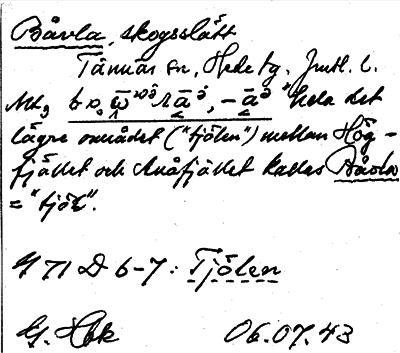 Båvla, skogsslätt
Tännäs sn, Hede tg. Jmtl. l.
"hela det
lägre området ("tjölen") mellan Hög-
fjället och Anåfjället kallas Båvla
= "tjöl".
71 D 6-7: Tjölen
G. Hbk 06.07.43